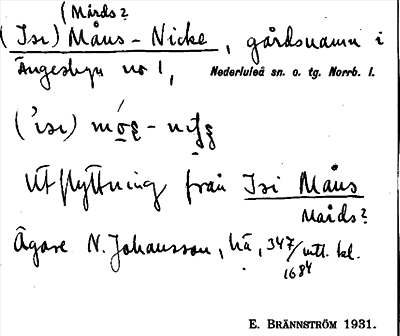 (Mårds?
(Isi) Måns - Nicke, gårdsnamn i
Ängesbyn no 1, Nederluleå sn. o. tg. Norrb. l.
Utflyttning från Isi Måns
Mårds?
Ägare N. Johansson, hä, 347/mtl. kl.
1684
E. BRÄNNSTRÖM 1931.